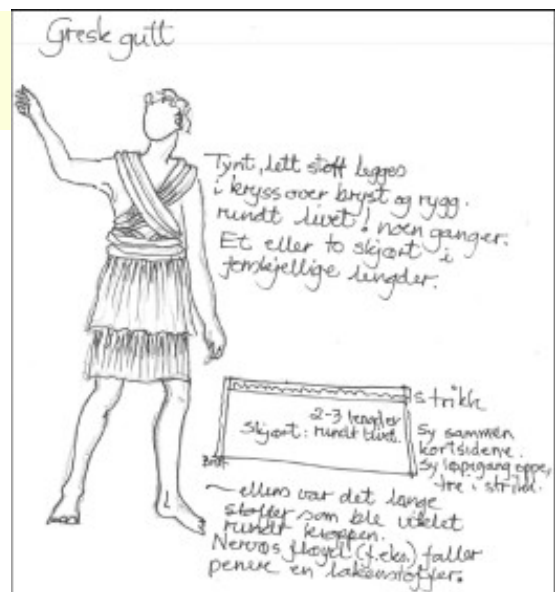 Gresk gutt
Tynt, lett stoff legges
i kryss over bryst og rygg.
rundt livet! noen ganger.
Et eller to skjørt i
forskjellige lengder.
strikk
2-3 lengder
Skjørt: rundt livet.
Sy sammen
kortsidene.
Sy løpegang oppe,
tre i strikk.
Brett
~ ellers var det lange
stoffer som ble viklet
rundt kroppen.
Nervøs fløyel (f.eks.) faller
penere en lakenstoffer.